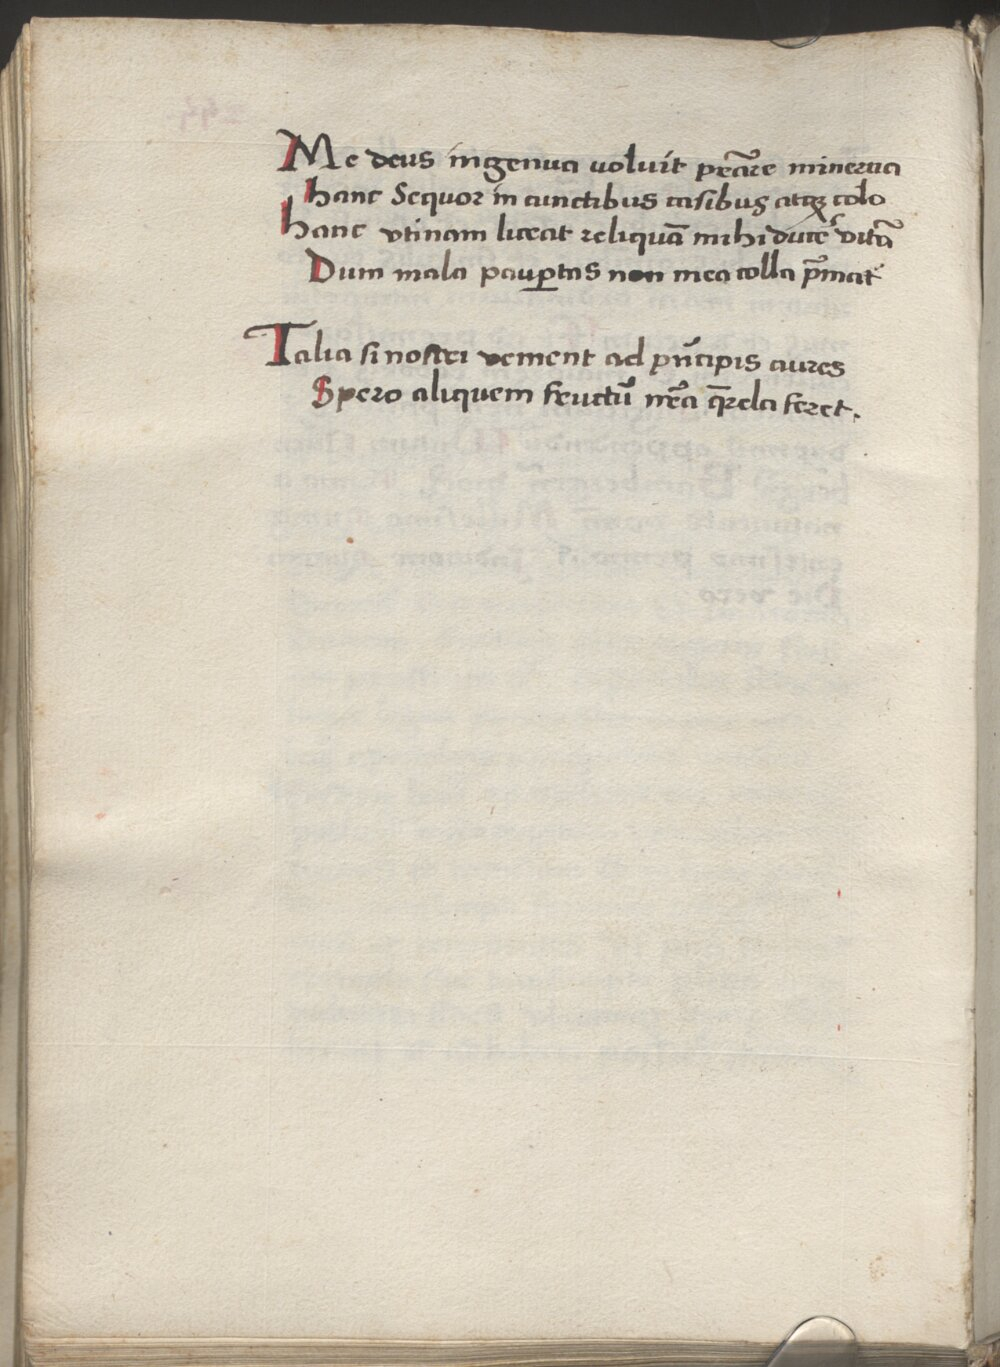 Me deus ingenua uoluit pecãre minerua
hanc Sequor in cunctibus casibus atqꝫ colo
hanc vtinam liceat reliquã mihi ducẽ vitã
Dum mala paup̱tas non mea colla p̃mat
Talia si nostri vement ad pñcipis aures
Spero aliquem fructũ nr̃a q̃rela feret.